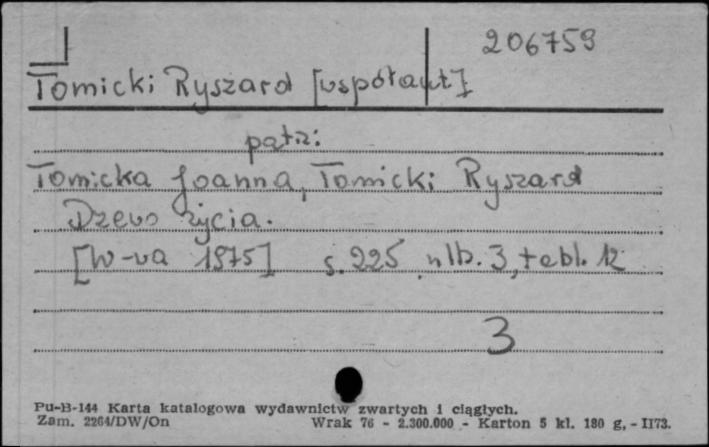 206759
Tomicki Ryszard [współaut]
patrz:
Tomicka Joanna, Tomicki Ryszard
Drzewo życia.
[W-wa 1975] s. 225, nlb. 3, tabl. 12
3
Pu-B-144 Karta katalogowa wydawnictw zwartych i ciągłych.
Zam. 2264/DW/On Wrak 76 - 2.300.000 - Karton 5 kl. 180 g, - II73.